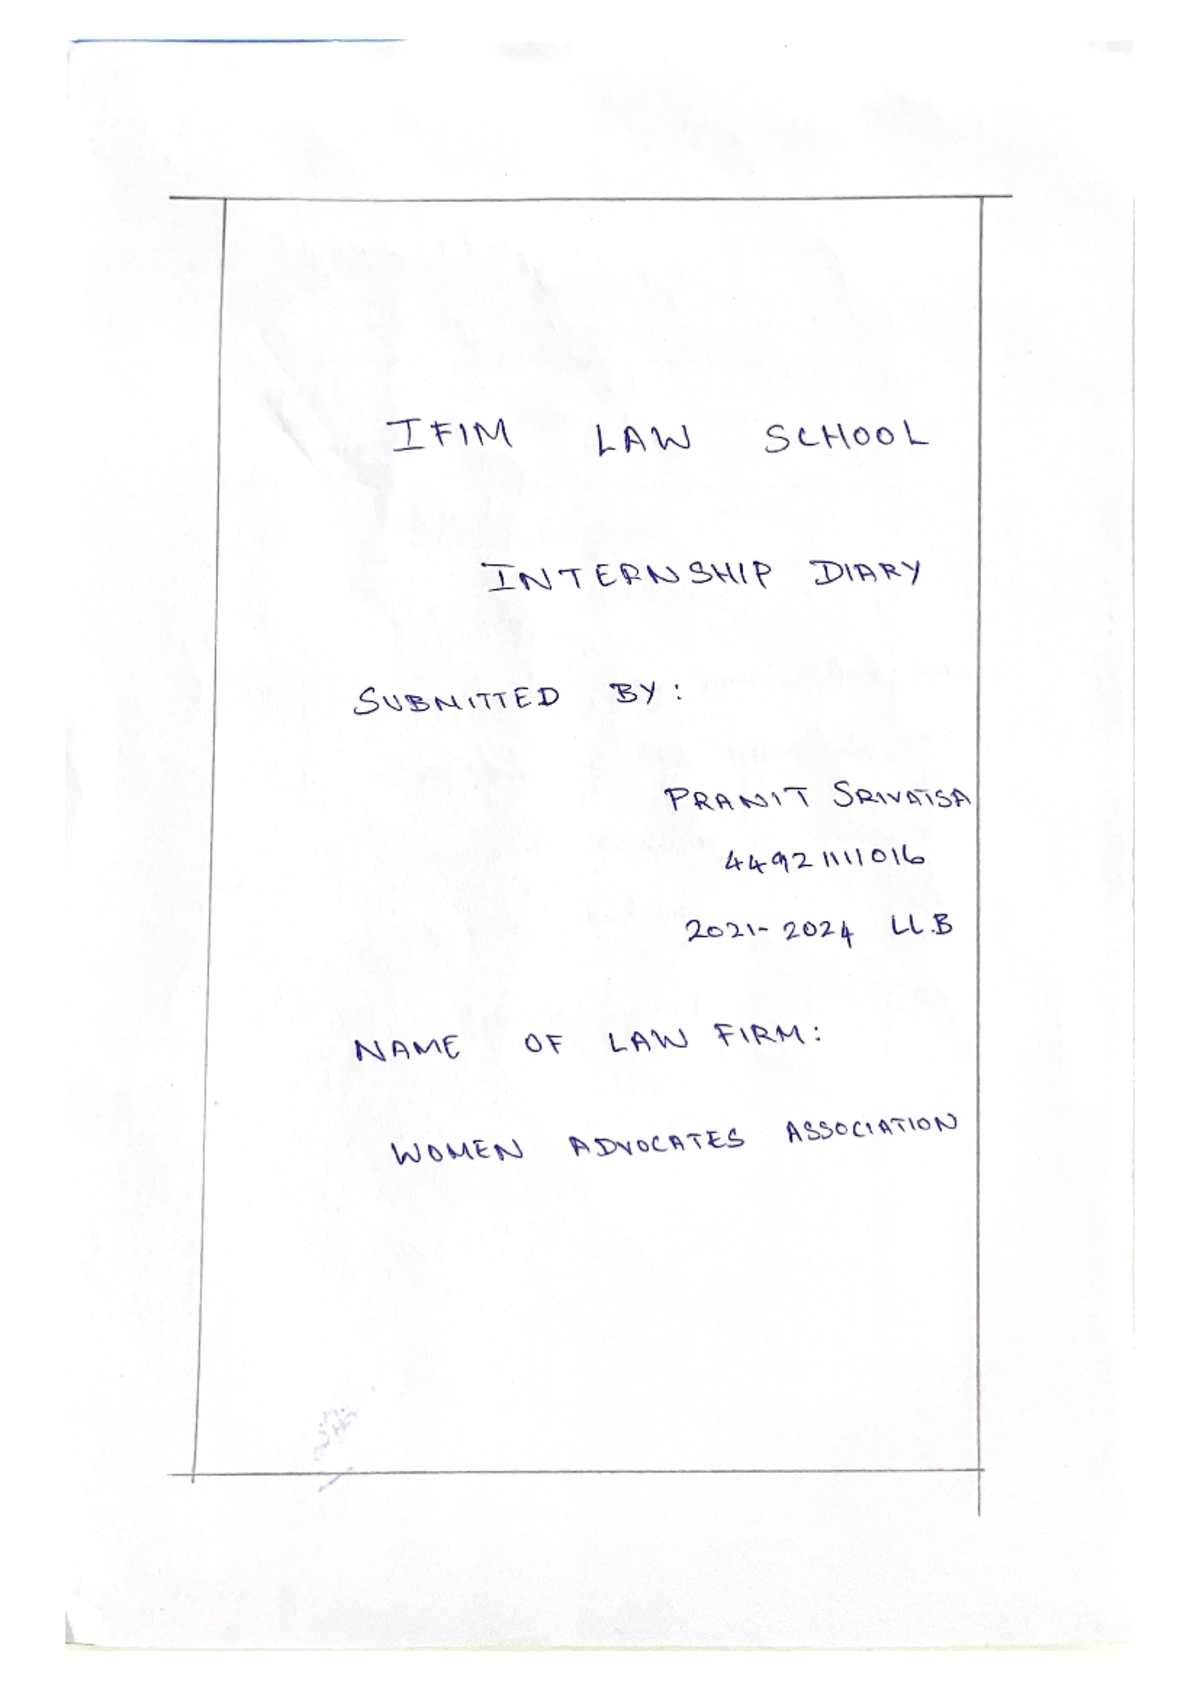 IFIM LAW SCHOOL
INTERNSHIP DIARY
SUBMITTED BY:
PRANIT SRIVATSA
44921111016
2021-2024 LL.B
NAME OF LAW FIRM:
WOMEN ADVOCATES ASSOCIATION